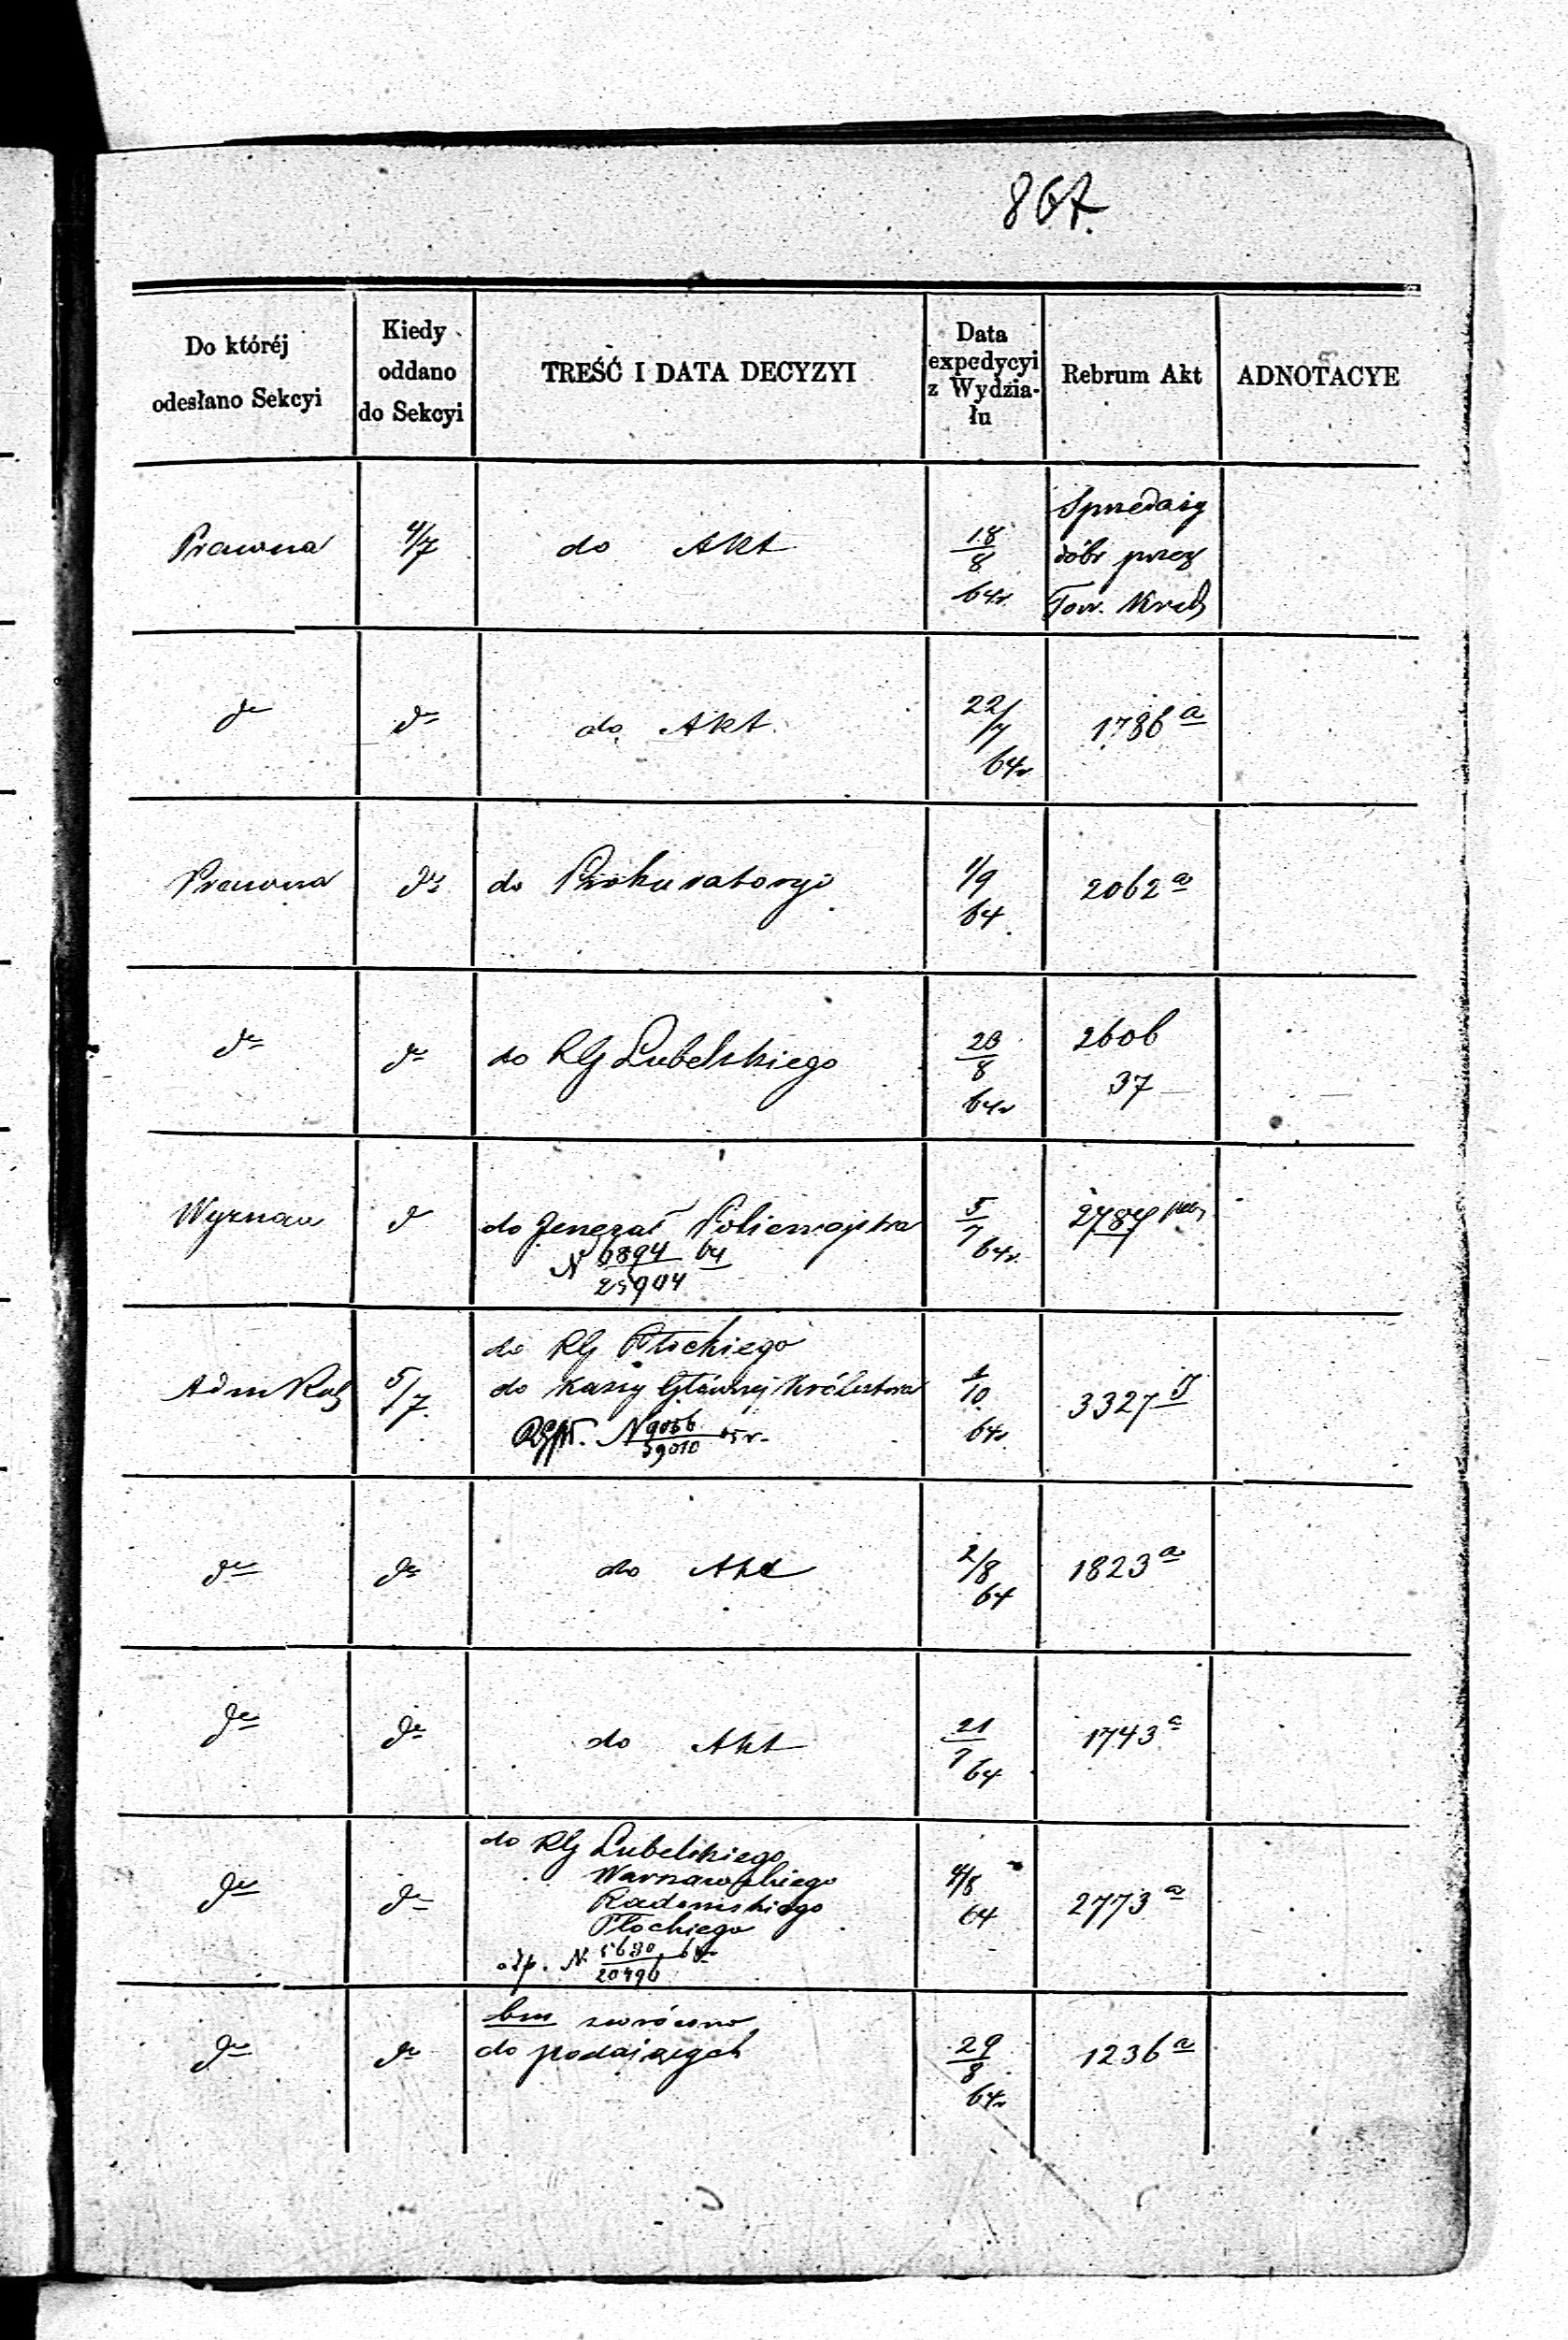 867.
Do któréj
odesłano Sekcyi
Kiedy
oddano
do Sekcyi
TREŚĆ I DATA DECYZYI
Data
expedycyi
z Wydzia-
łu
Rebrum Akt
ADNOTACYE
Prawna
4/7
do Akt
18
8
64r
Sprzedaży
dóbr przez
Tow. Kred
do
do
do Akt
22/
7
64r
1786 a
Prawna
do
do Prokuratoryi
1/9
64
2062 a
do
do
do RG Lubelskiego
23
8
64r
2606
37
Wyznań
do
do Jenerał Policmajstra
N 6894 64
25904
5
7
64r
2784
Adm
5/7
do RG Płockiego
do Kassy Głównej Królestwa
N 9056
39010
1
10
64r
3327
do
do
do Akt
2/8
64
1823 a
do
do
do Akt
21
7
64
1743 a
do
do
do RG Lubelskiego
Warszawskiego
Radomskiego
Płockiego
odp. N 5680
20496
4/8
64
2773 a
do
do
bm zwrócono
do podających
29
8
64r
1236 a